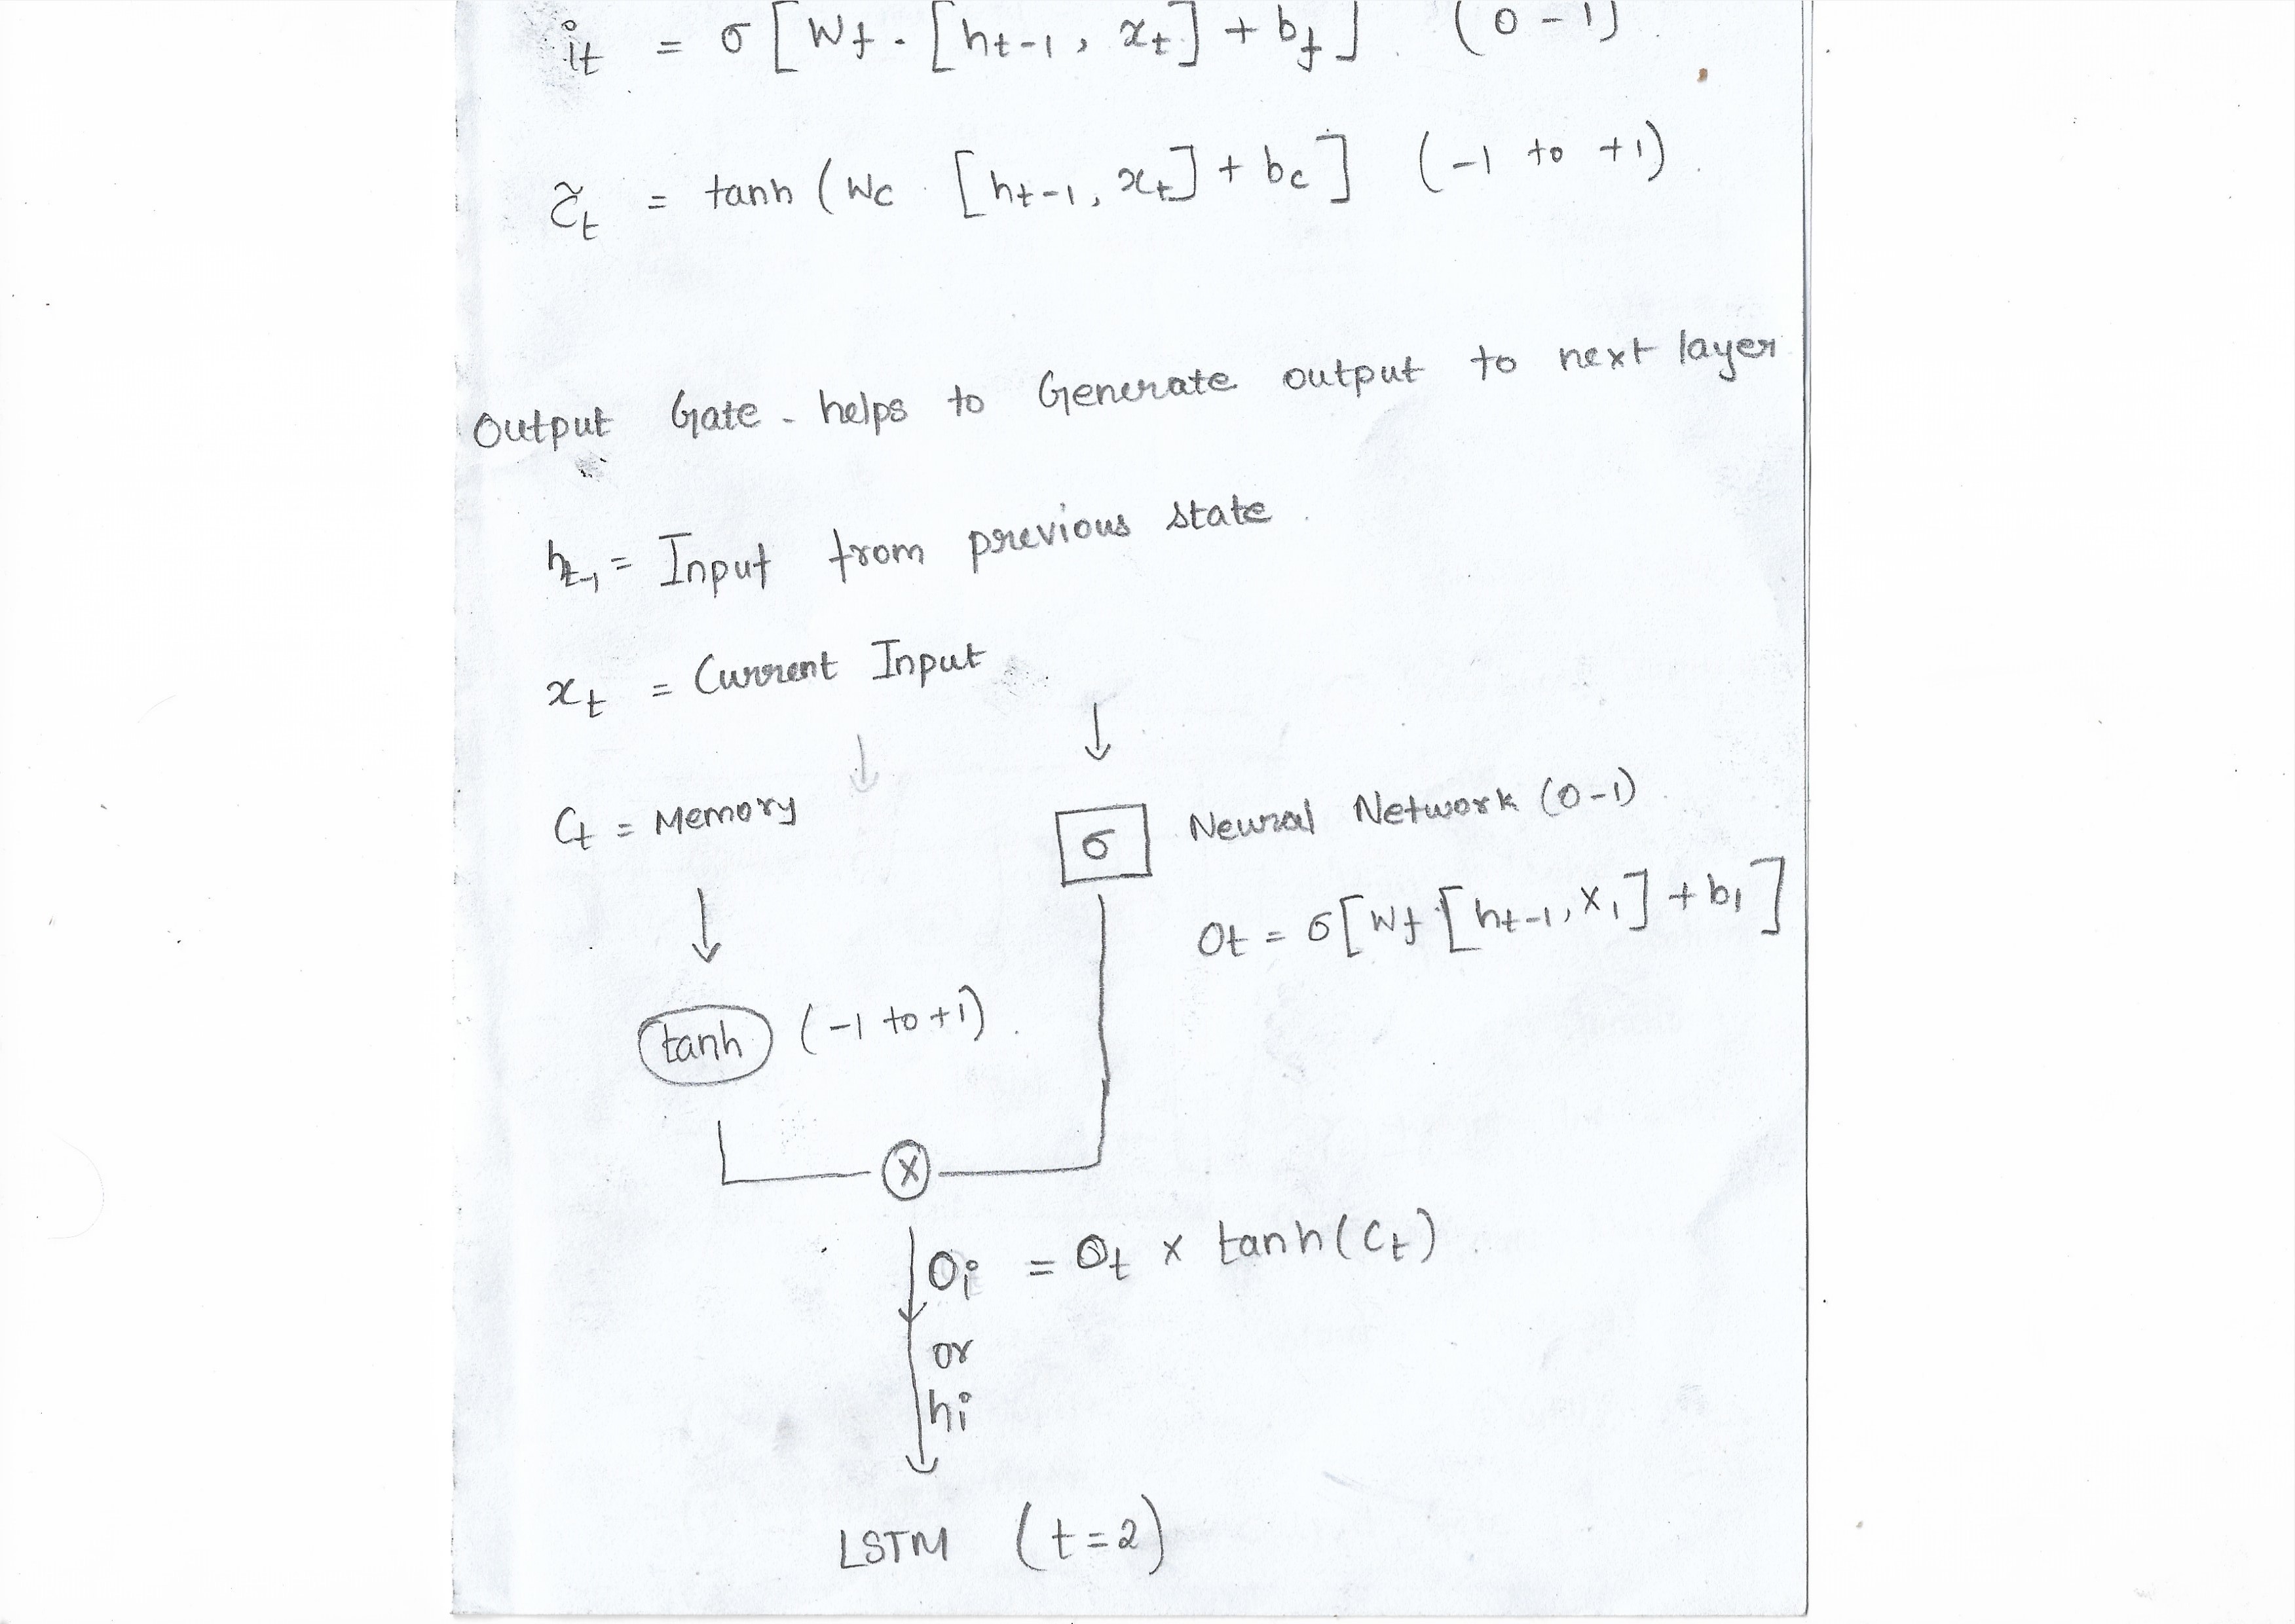 it = σ [ Wf . [ht-1, xt] + bf ] (0 - 1)
C̃t = tanh ( Wc . [ht-1, xt] + bc ] (-1 to +1)
Output Gate - helps to Generate output to next layer
ht-1 = Input from previous state.
xt = Current Input
Ct = Memory
σ
Neural Network (0-1)
Ot = σ[Wf . [ht-1, x1] + b1]
tanh (-1 to +1).
x
Oi = Ot x tanh(Ct)
or
hi
LSTM (t=2)